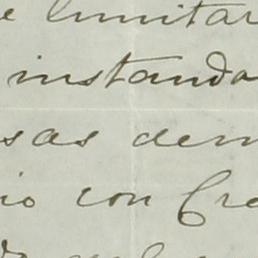 e limitar
instando
sas dem
io con Cre